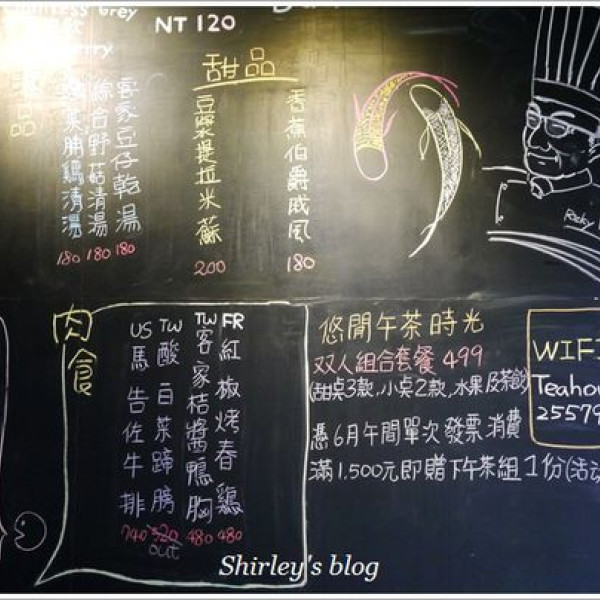 Grey
NT 120
甜品
香蕉伯爵戚風
180
豆漿提拉米蘇
200
客家豆仔乾湯
180
綜合野菇清湯
180
脯鷄清湯
180
肉食
FR
紅椒烤春鷄
480
TW
客家桔醬鴨胸
480
TW
酸白菜蹄膀
520
out
US
馬告佐牛排
740
悠閒午茶時光
双人組合套餐 499
(甜桌3款,小桌2款,水果及茶飲)
憑6月午間單次發票消費
滿1,500元即贈下午茶組1份(活动
WIFI
Teahou
25579
Ricky
Shirley's blog